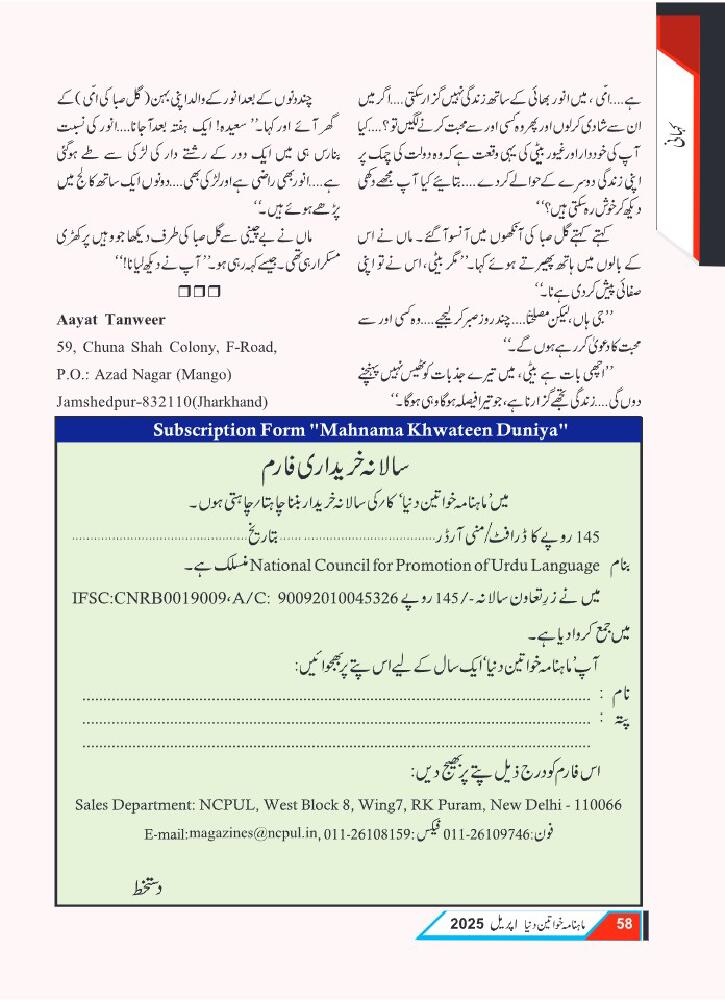 کہانی
ہے....امّی، میں انور بھائی کے ساتھ زندگی نہیں گزار سکتی....اگر میں
ان سے شادی کر لوں اور پھر وہ کسی اور سے محبت کرنے لگیں تو؟....کیا
آپ کی خوددار اور غیور بیٹی کی یہی وقعت ہے کہ وہ دولت کی چمک پر
اپنی زندگی دوسرے کے حوالے کر دے....بتائیے کیا آپ مجھے دکھی
دیکھ کر خوش رہ سکتی ہیں؟‘‘
کہتے کہتے گل صبا کی آنکھوں میں آنسو آ گئے۔ ماں نے اس
کے بالوں میں ہاتھ پھیرتے ہوئے کہا۔’’مگر بیٹی، اس نے تو اپنی
صفائی پیش کر دی ہے نا۔‘‘
’’جی ہاں، لیکن مصلحتاً....چند روز صبر کر لیجیے....وہ کسی اور سے
محبت کا دعویٰ کر رہے ہوں گے۔‘‘
’’اچھی بات ہے بیٹی، میں تیرے جذبات کو ٹھیس نہیں پہنچنے
دوں گی....زندگی تجھے گزارنا ہے، جو تیرا فیصلہ ہوگا وہی ہوگا۔‘‘
چند دنوں کے بعد انور کے والد اپنی بہن (گل صبا کی امّی) کے
گھر آئے اور کہا۔’’سعیدہ! ایک ہفتہ بعد آ جانا....انور کی نسبت
بنارس ہی میں ایک دور کے رشتے دار کی لڑکی سے طے ہو گئی
ہے....انور بھی راضی ہے اور لڑکی بھی....دونوں ایک ساتھ کالج میں
پڑھے ہوئے ہیں۔‘‘
ماں نے بے چینی سے گل صبا کی طرف دیکھا جو وہیں پر کھڑی
مسکرا رہی تھی۔ جیسے کہہ رہی ہو۔’’آپ نے دیکھ لیا نا!‘‘
□□□
Aayat Tanweer
59, Chuna Shah Colony, F-Road,
P.O.: Azad Nagar (Mango)
Jamshedpur-832110(Jharkhand)
Subscription Form "Mahnama Khwateen Duniya"
سالانہ خریداری فارم
میں ’ماہنامہ خواتین دنیا‘ کا/کی سالانہ خریدار بننا چاہتا/چاہتی ہوں۔
145 روپے کا ڈرافٹ/منی آرڈر........................................بتاریخ........................................
بنام National Council for Promotion of Urdu Language منسلک ہے۔
میں نے زر تعاون سالانہ -/145 روپے IFSC:CNRB0019009، A/C: 90092010045326
میں جمع کروا دیا ہے۔
آپ ’ماہنامہ خواتین دنیا‘ ایک سال کے لیے اس پتے پر بھجوائیں:
نام : ........................................
پتہ : ........................................
........................................
اس فارم کو درج ذیل پتے پر بھیج دیں:
Sales Department: NCPUL, West Block 8, Wing7, RK Puram, New Delhi - 110066
E-mail:magazines@ncpul.in, 011-26108159:فیکس 011-26109746:فون
دستخط
ماہنامہ خواتین دنیا اپریل 2025 58